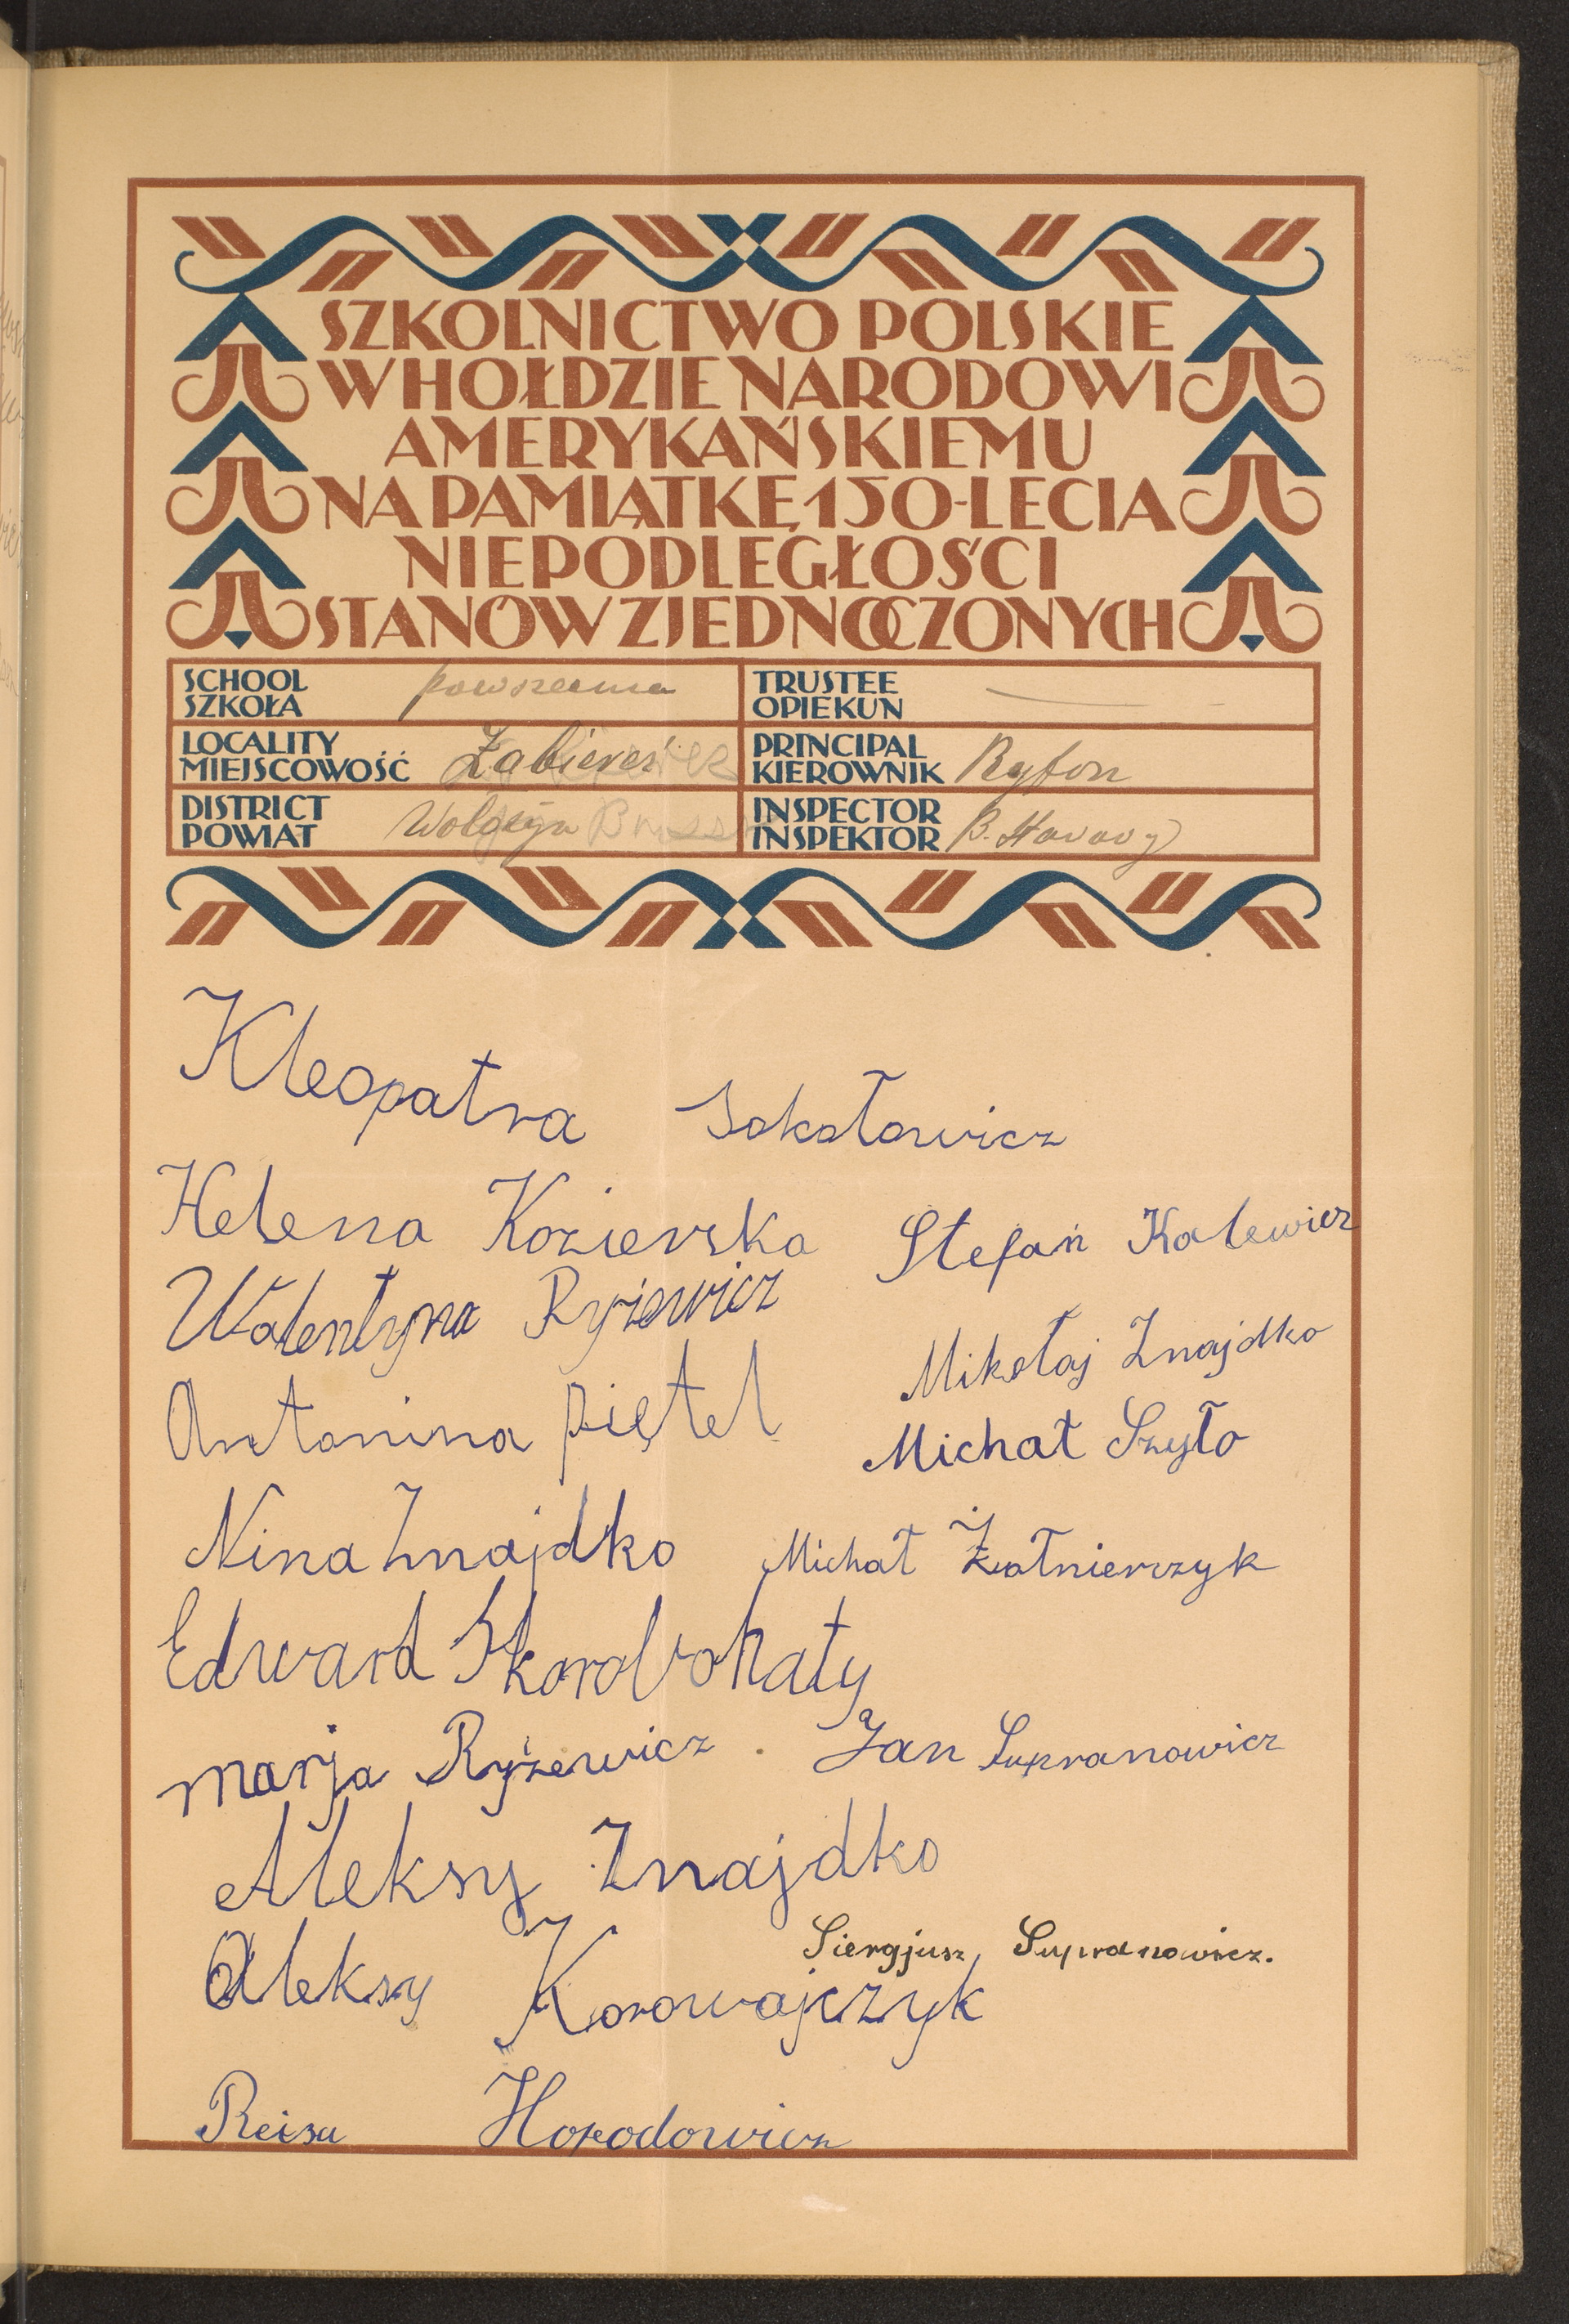 SZKOLNICTWO POLSKIE
W HOŁDZIE NARODOWI
AMERYKAŃSKIEMU
NA PAMIĄTKĘ 150-LECIA
NIEPODLEGŁOŚCI
STANÓW ZJEDNOCZONYCH
SCHOOL
SZKOŁA powszechna
TRUSTEE
OPIEKUN —
LOCALITY
MIEJSCOWOŚĆ Zabierež
PRINCIPAL
KIEROWNIK Ryfon
DISTRICT
POWIAT
INSPECTOR
INSPEKTOR B.
Kleopatra Sokołowicz
Helena Kozierska Stefan Kalewicz
Walentyna Ryżewicz
Mikołaj Znajdko
Antonina Piętel
Michał Szyło
Nina Znajdko Michał Żołnierczyk
Edward Skorobohaty
Marja Ryżewicz. Jan Supranowicz
Aleksy Znajdko
Siergjusz Supranowicz.
Aleksy Korowajczyk
Reisa Horodowicz